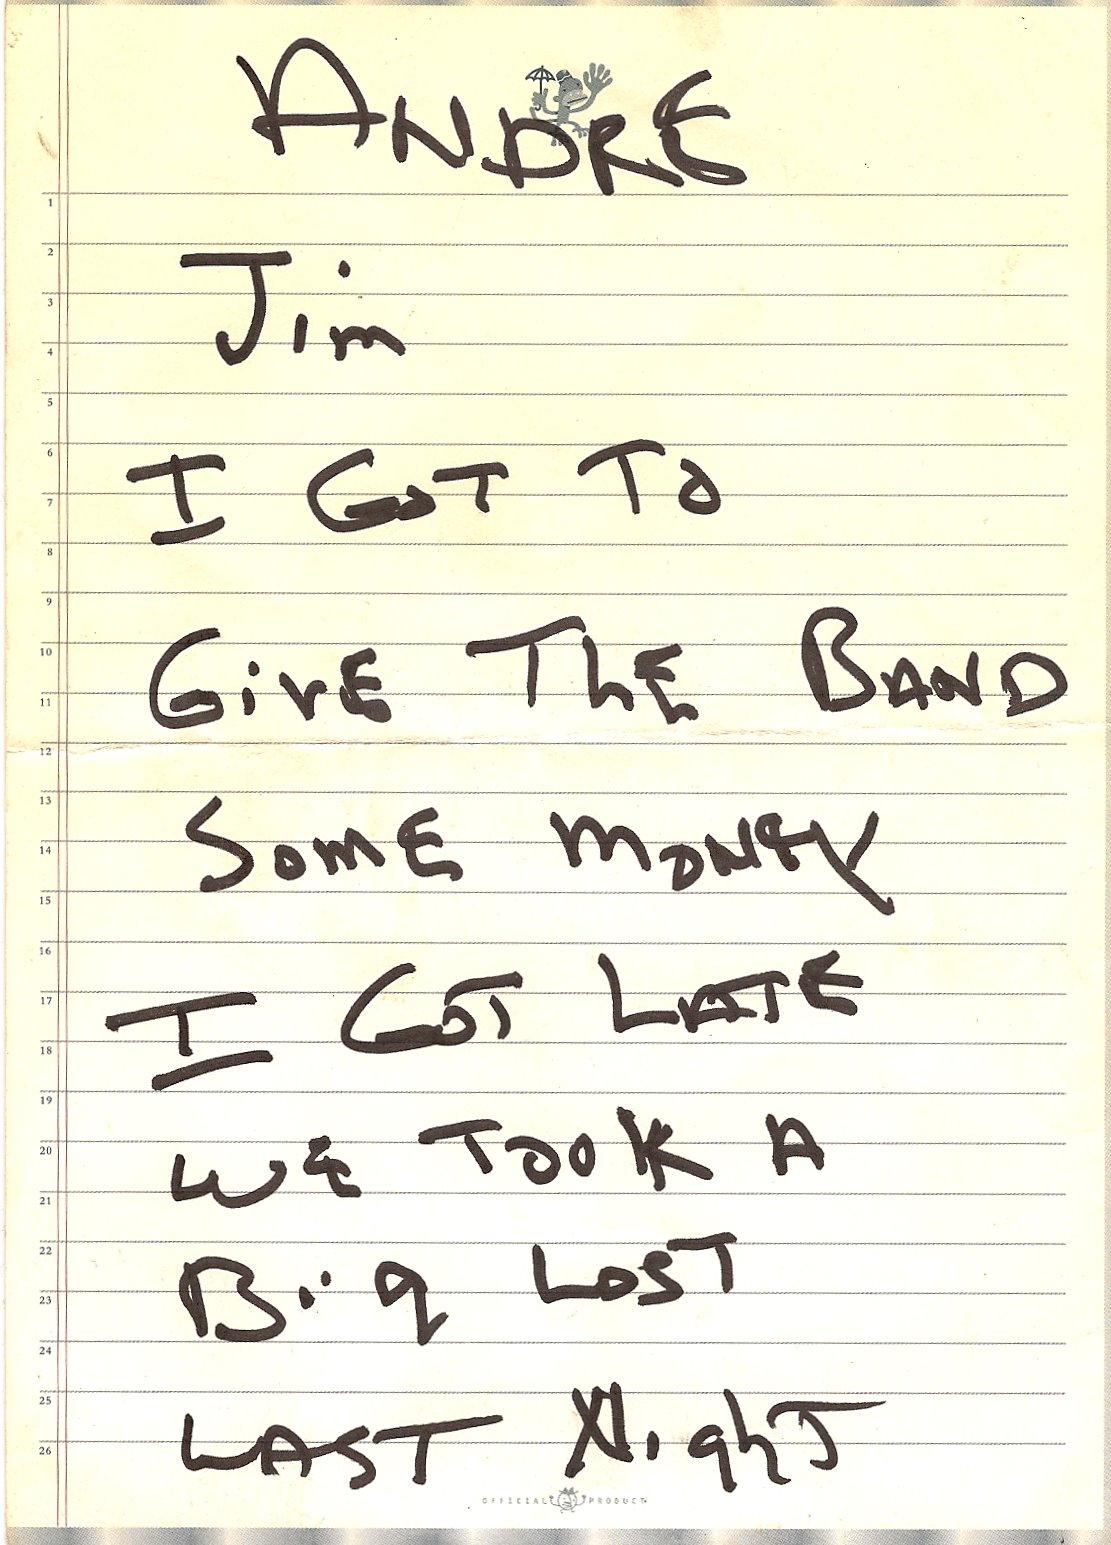 ANDRE
Jim
I GOT TO
GIVE THE BAND
SOME MONEY
I GOT LATE
WE TOOK A
Big LOST
LAST NighT
1
2
3
4
5
6
7
8
9
10
11
12
13
14
15
16
17
18
19
20
21
22
23
24
25
26
OFFICIAL PRODUCT